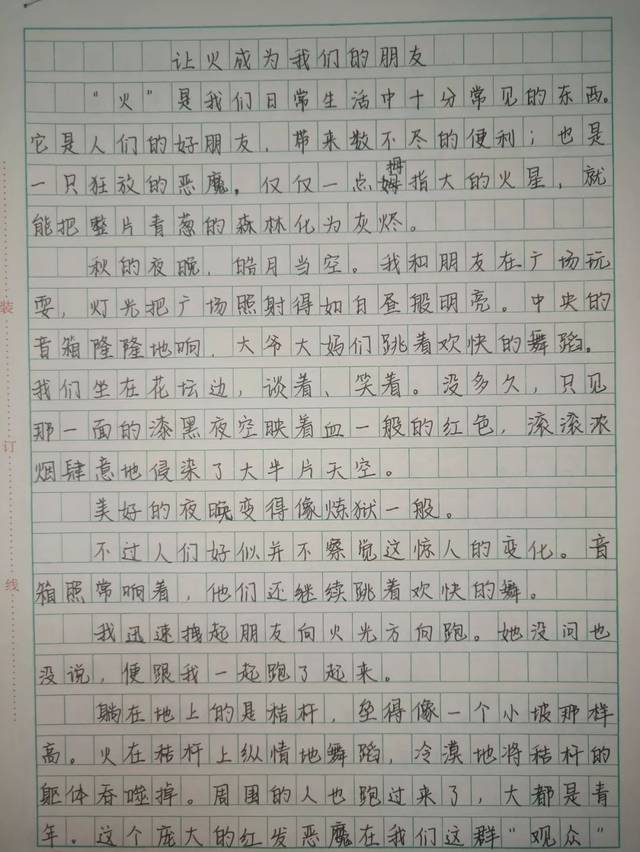 让火成为我们的朋友
“火”是我们日常生活中十分常见的东西。
它是人们的好朋友，带来数不尽的便利；也是
一只狂放的恶魔，仅仅一点拇指大的火星，就
能把整片青葱的森林化为灰烬。
秋的夜晚，皓月当空。我和朋友在广场玩
耍，灯光把广场照射得如白昼般明亮。中央的
音箱隆隆地响，大爷大妈们跳着欢快的舞蹈。
我们坐在花坛边，谈着、笑着。没多久，只见
那一面的漆黑夜空映着血一般的红色，滚滚浓
烟肆意地侵染了大半片天空。
美好的夜晚变得像炼狱一般。
不过人们好似并不察觉这惊人的变化。音
箱照常响着，他们还继续跳着欢快的舞。
我迅速拽起朋友向火光方向跑。她没问也
没说，便跟我一起跑了起来。
躺在地上的是秸杆，垒得像一个小坡那样
高。火在秸杆上纵情地舞蹈，冷漠地将秸杆的
躯体吞噬掉。周围的人也跑过来了，大都是青
年。这个庞大的红发恶魔在我们这群“观众”
装
订
线